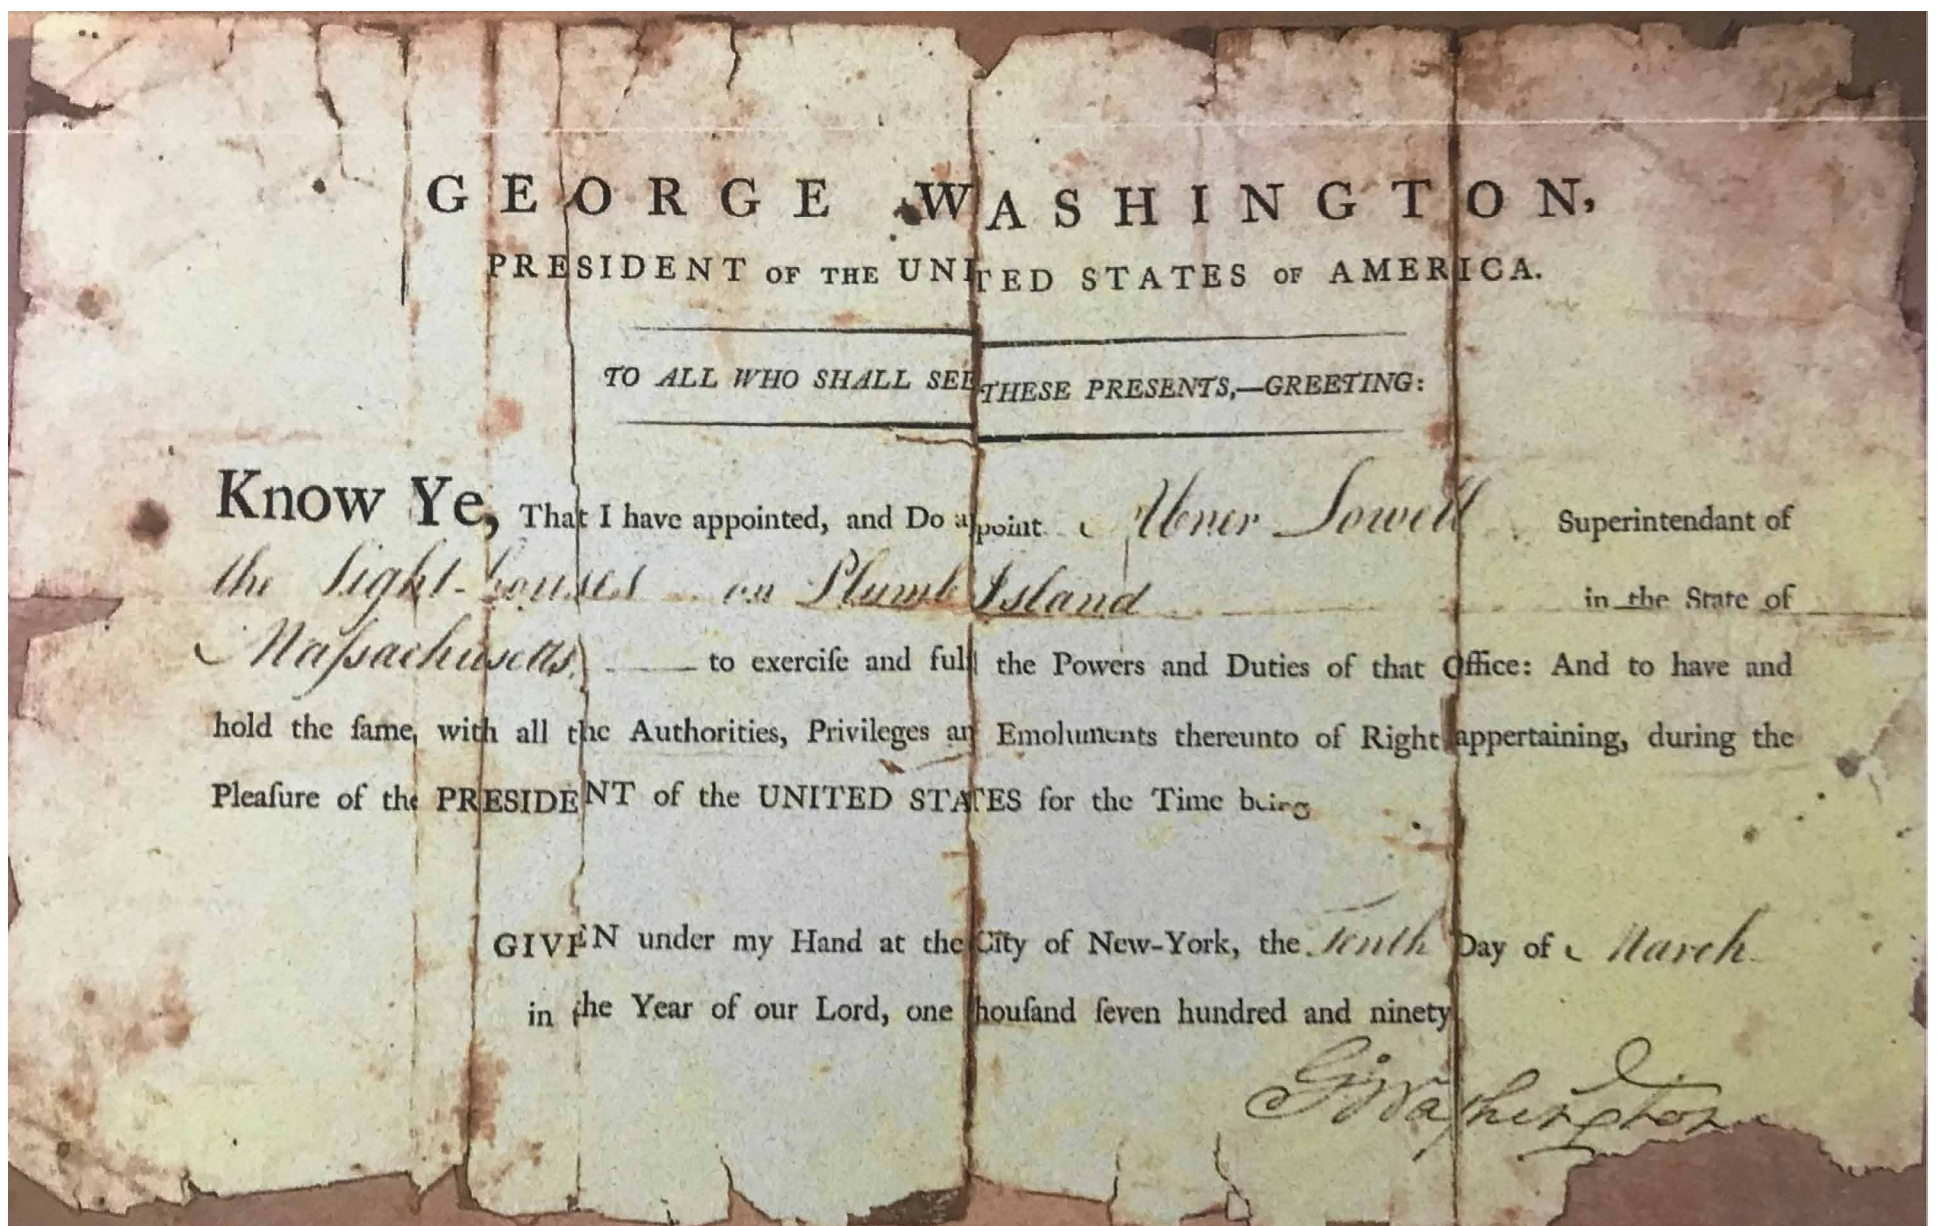 GEORGE WASHINGTON,
PRESIDENT OF THE UNITED STATES OF AMERICA.
TO ALL WHO SHALL SEE THESE PRESENTS,—GREETING:
Know Ye, That I have appointed, and Do appoint Abner Lowell Superintendant of
the Light-houses on Plumb Island in the State of
Maſsachusetts, to exerciſe and full the Powers and Duties of that Office: And to have and
hold the ſame, with all the Authorities, Privileges an Emoluments thereunto of Right appertaining, during the
Pleaſure of the PRESIDENT of the UNITED STATES for the Time being
GIVEN under my Hand at the City of New-York, the Tenth Day of March
in the Year of our Lord, one thouſand ſeven hundred and ninety
G:Waſhington